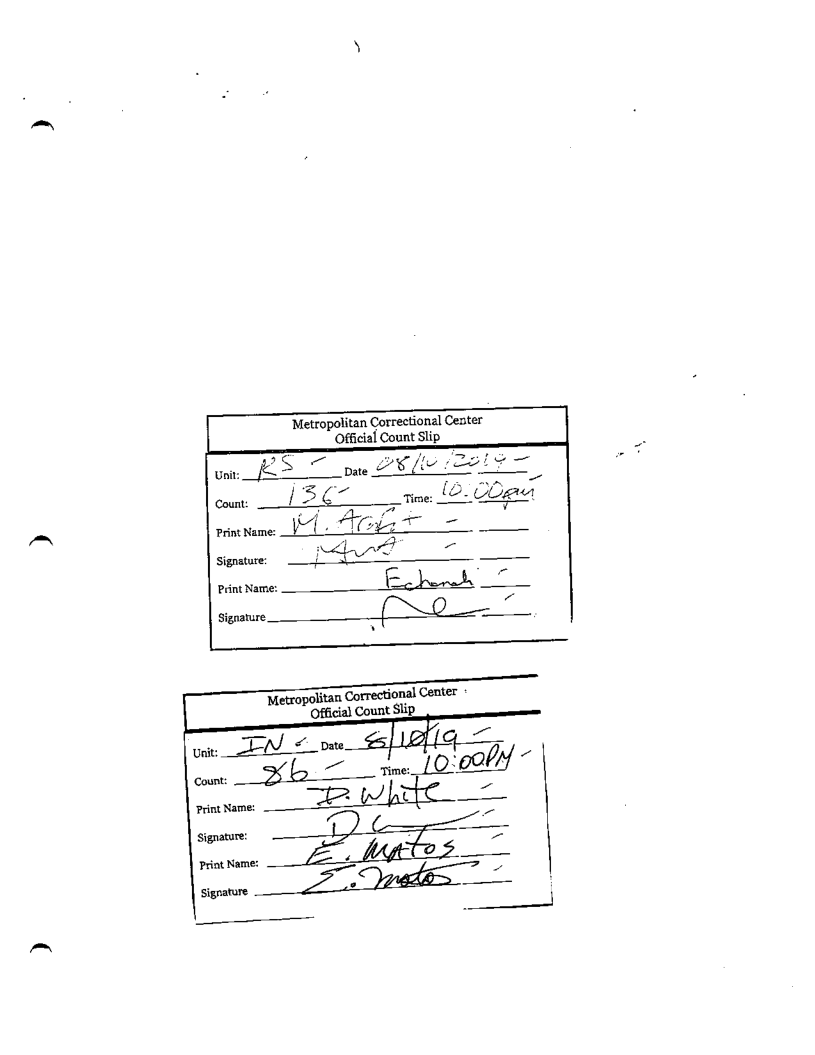 Metropolitan Correctional Center
Official Count Slip
Unit: KS Date 08/10/2019
Count: 136 Time: 10:00pm
Print Name: M.
Signature:
Print Name:
Signature
Metropolitan Correctional Center
Official Count Slip
Unit: IN Date 8/10/19
Count: 86 Time: 10:00PM
Print Name: D. White
Signature:
Print Name: E. MATOS
Signature E. Matos